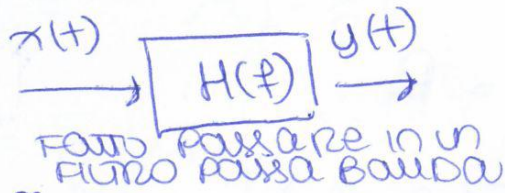 x(t) H(f) y(t)
FATTO PASSARE IN UN
FILTRO PASSA BANDA